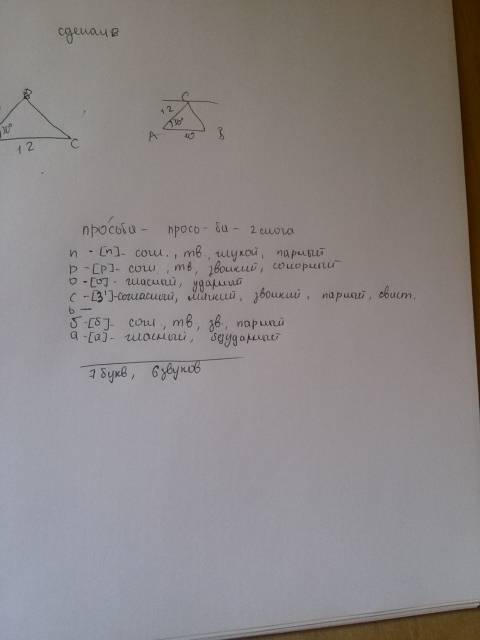 сделать
B
30°
12
C
C
12
30°
A
10
B
про́сьба - прось-ба - 2 слога
п - [п] - согл., тв, глухой, парный
р - [р] - согл, тв, звонкий, сонорный
о - [о] - гласный, ударный
с - [з'] - согласный, мягкий, звонкий, парный, свист.
ь —
б - [б] - согл, тв, зв, парный
а - [а] - гласный, безударный
7 букв, 6 звуков